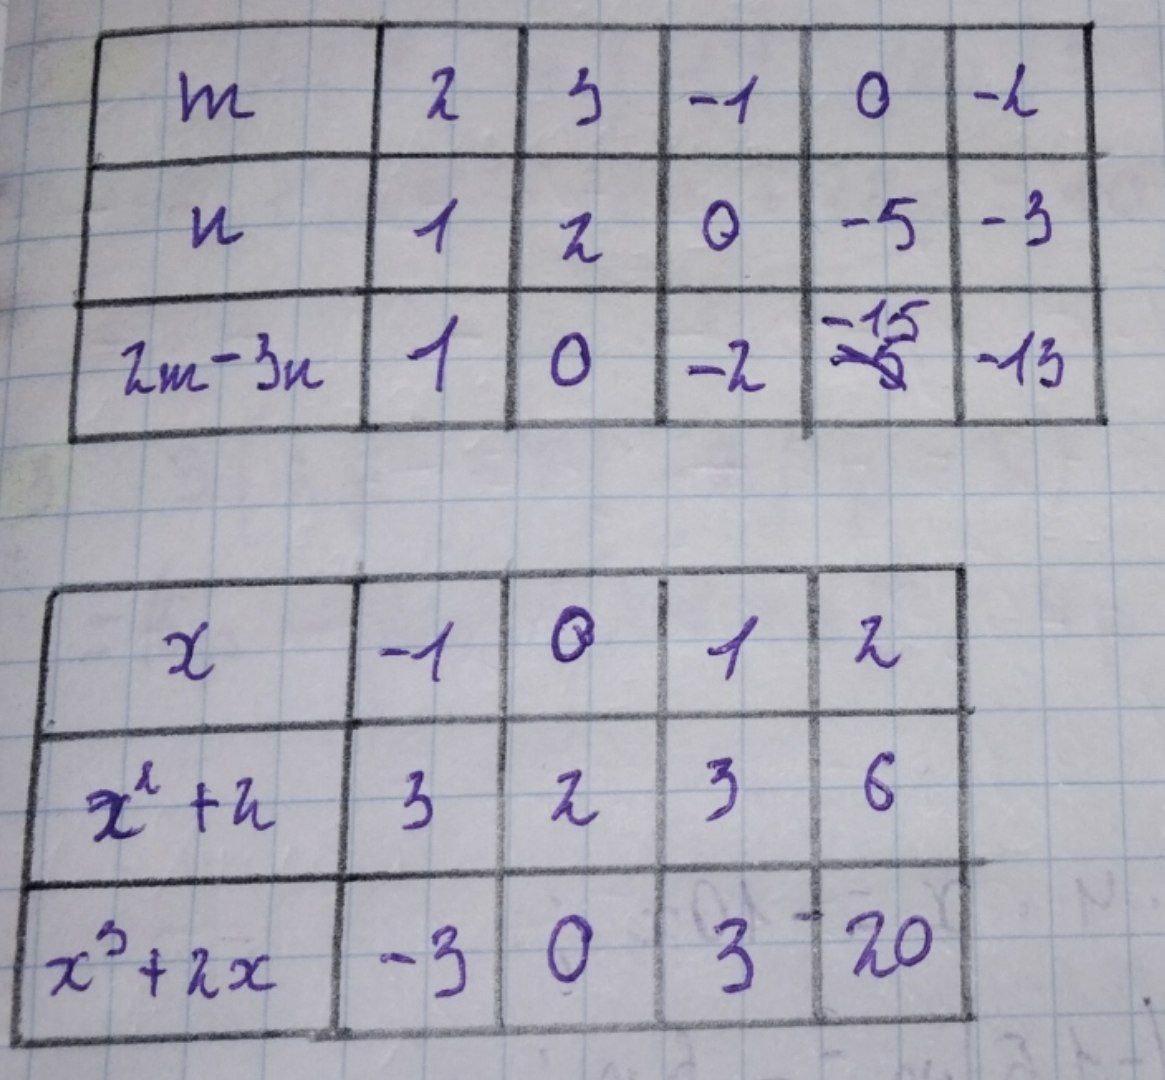 m 2 3 -1 0 -2
n 1 2 0 -5 -3
2m-3n 1 0 -2 -15 -13
x -1 0 1 2
x² +2 3 2 3 6
x³+2x -3 0 3 20